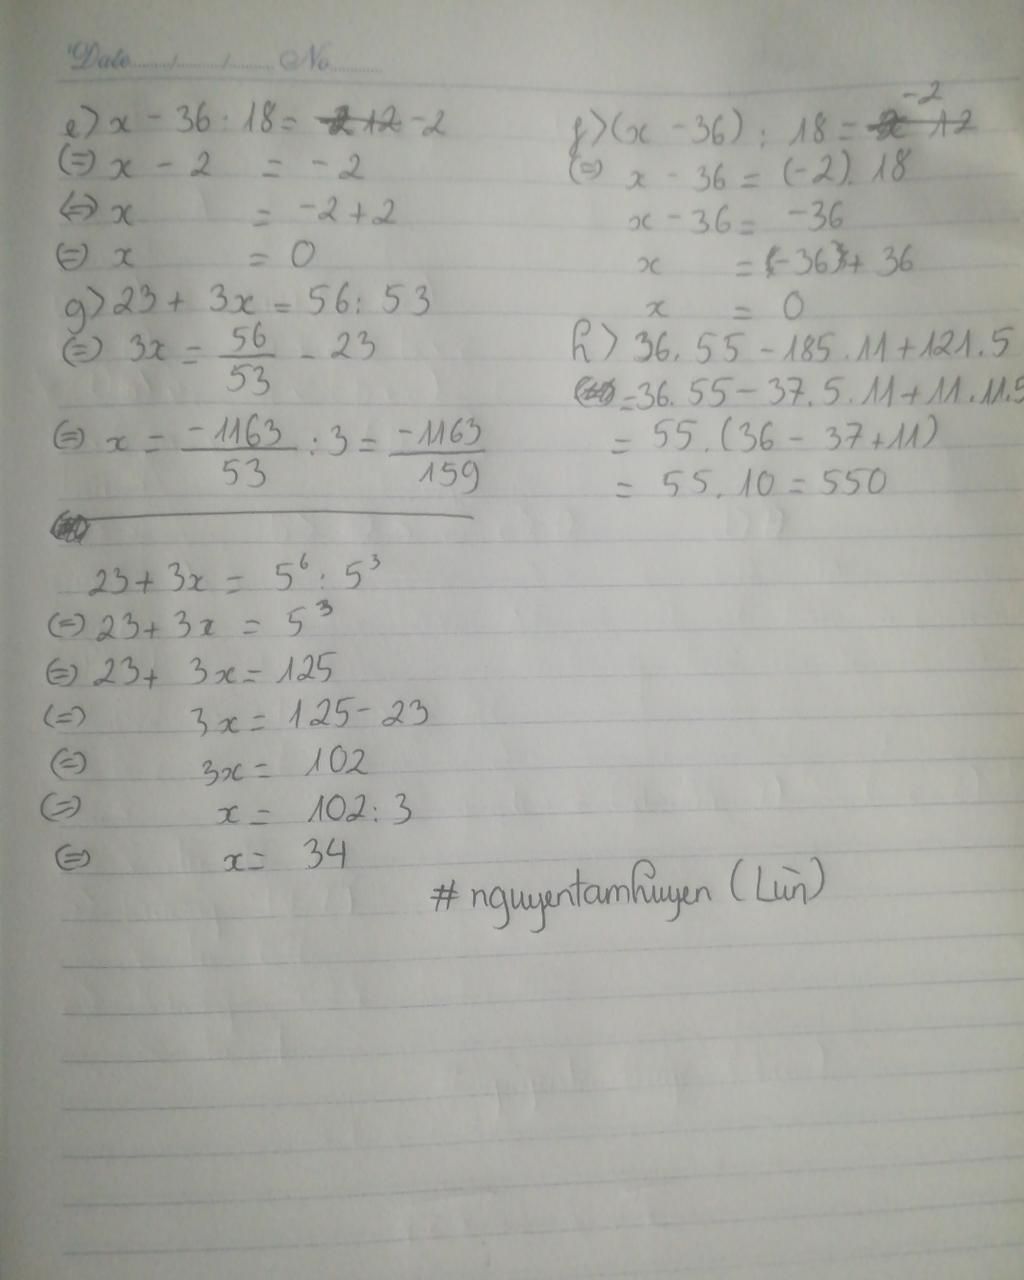 Date ...../...../..... No ..........
e) x - 36 : 18 = 2 12 -2
(=) x - 2 = -2
(=) x = -2 + 2
(=) x = 0
g) 23 + 3x = 56 : 53
(=) 3x = 56/53 - 23
(=) x = -1163/53 : 3 = -1163/159
f) (x - 36) : 18 = -2 12
(=) x - 36 = (-2) . 18
x - 36 = -36
x = (-36) + 36
x = 0
h) 36 . 55 - 185 . 11 + 121 . 5
= 36 . 55 - 37 . 5 . 11 + 11 . 11 . 5
= 55 . (36 - 37 + 11)
= 55 . 10 = 550
23 + 3x = 5⁶ : 5³
(=) 23 + 3x = 5³
(=) 23 + 3x = 125
(=) 3x = 125 - 23
(=) 3x = 102
(=) x = 102 : 3
(=) x = 34
# nguyentamhuyen (Lùn)